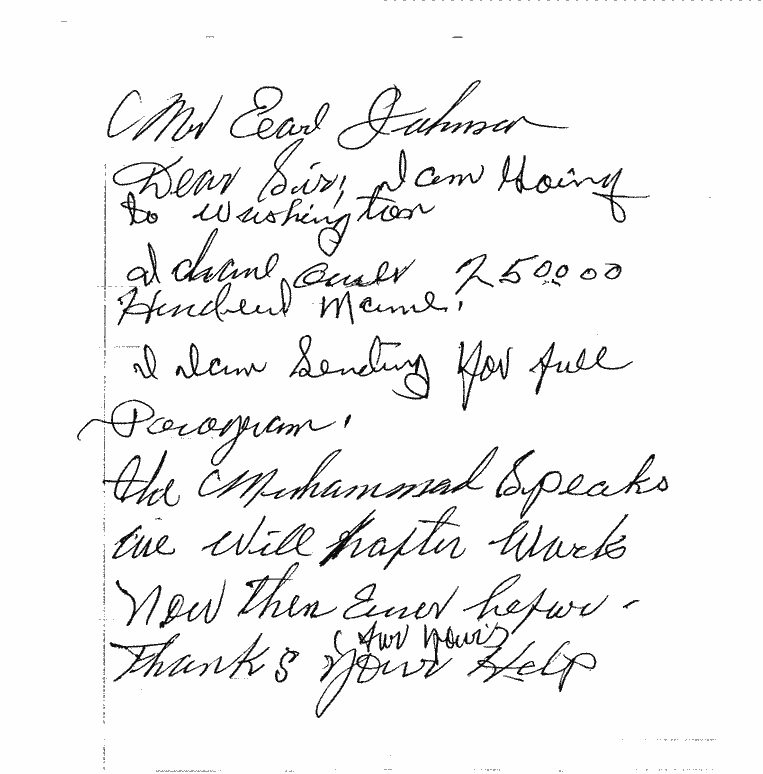 Mr Eearl Johnson
Dear Sir, I am Going
to Washington
I have over 250000
Hundred name.
I I am Sending for full
Porogram.
the Muhammad Speaks
we will hafter work
Now then Ever before -
(for yours
Thanks your Help